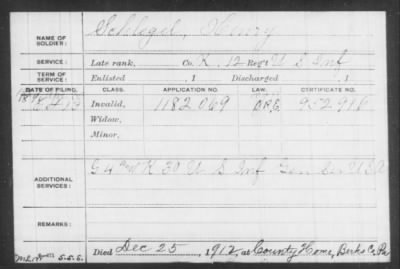 NAME OF SOLDIER: Schlegel, Henry
SERVICE: Late rank, Co. K, 12 Reg't U S Inf
TERM OF SERVICE: Enlisted , 1 Discharged , 1
DATE OF FILING. CLASS. APPLICATION NO. LAW. CERTIFICATE NO.
Invalid, 1182069 952916
Widow,
Minor,
ADDITIONAL SERVICES: K 30 U S Inf U S A
REMARKS:
Died Dec 25, 1912, at County Home, Berks Co, Pa